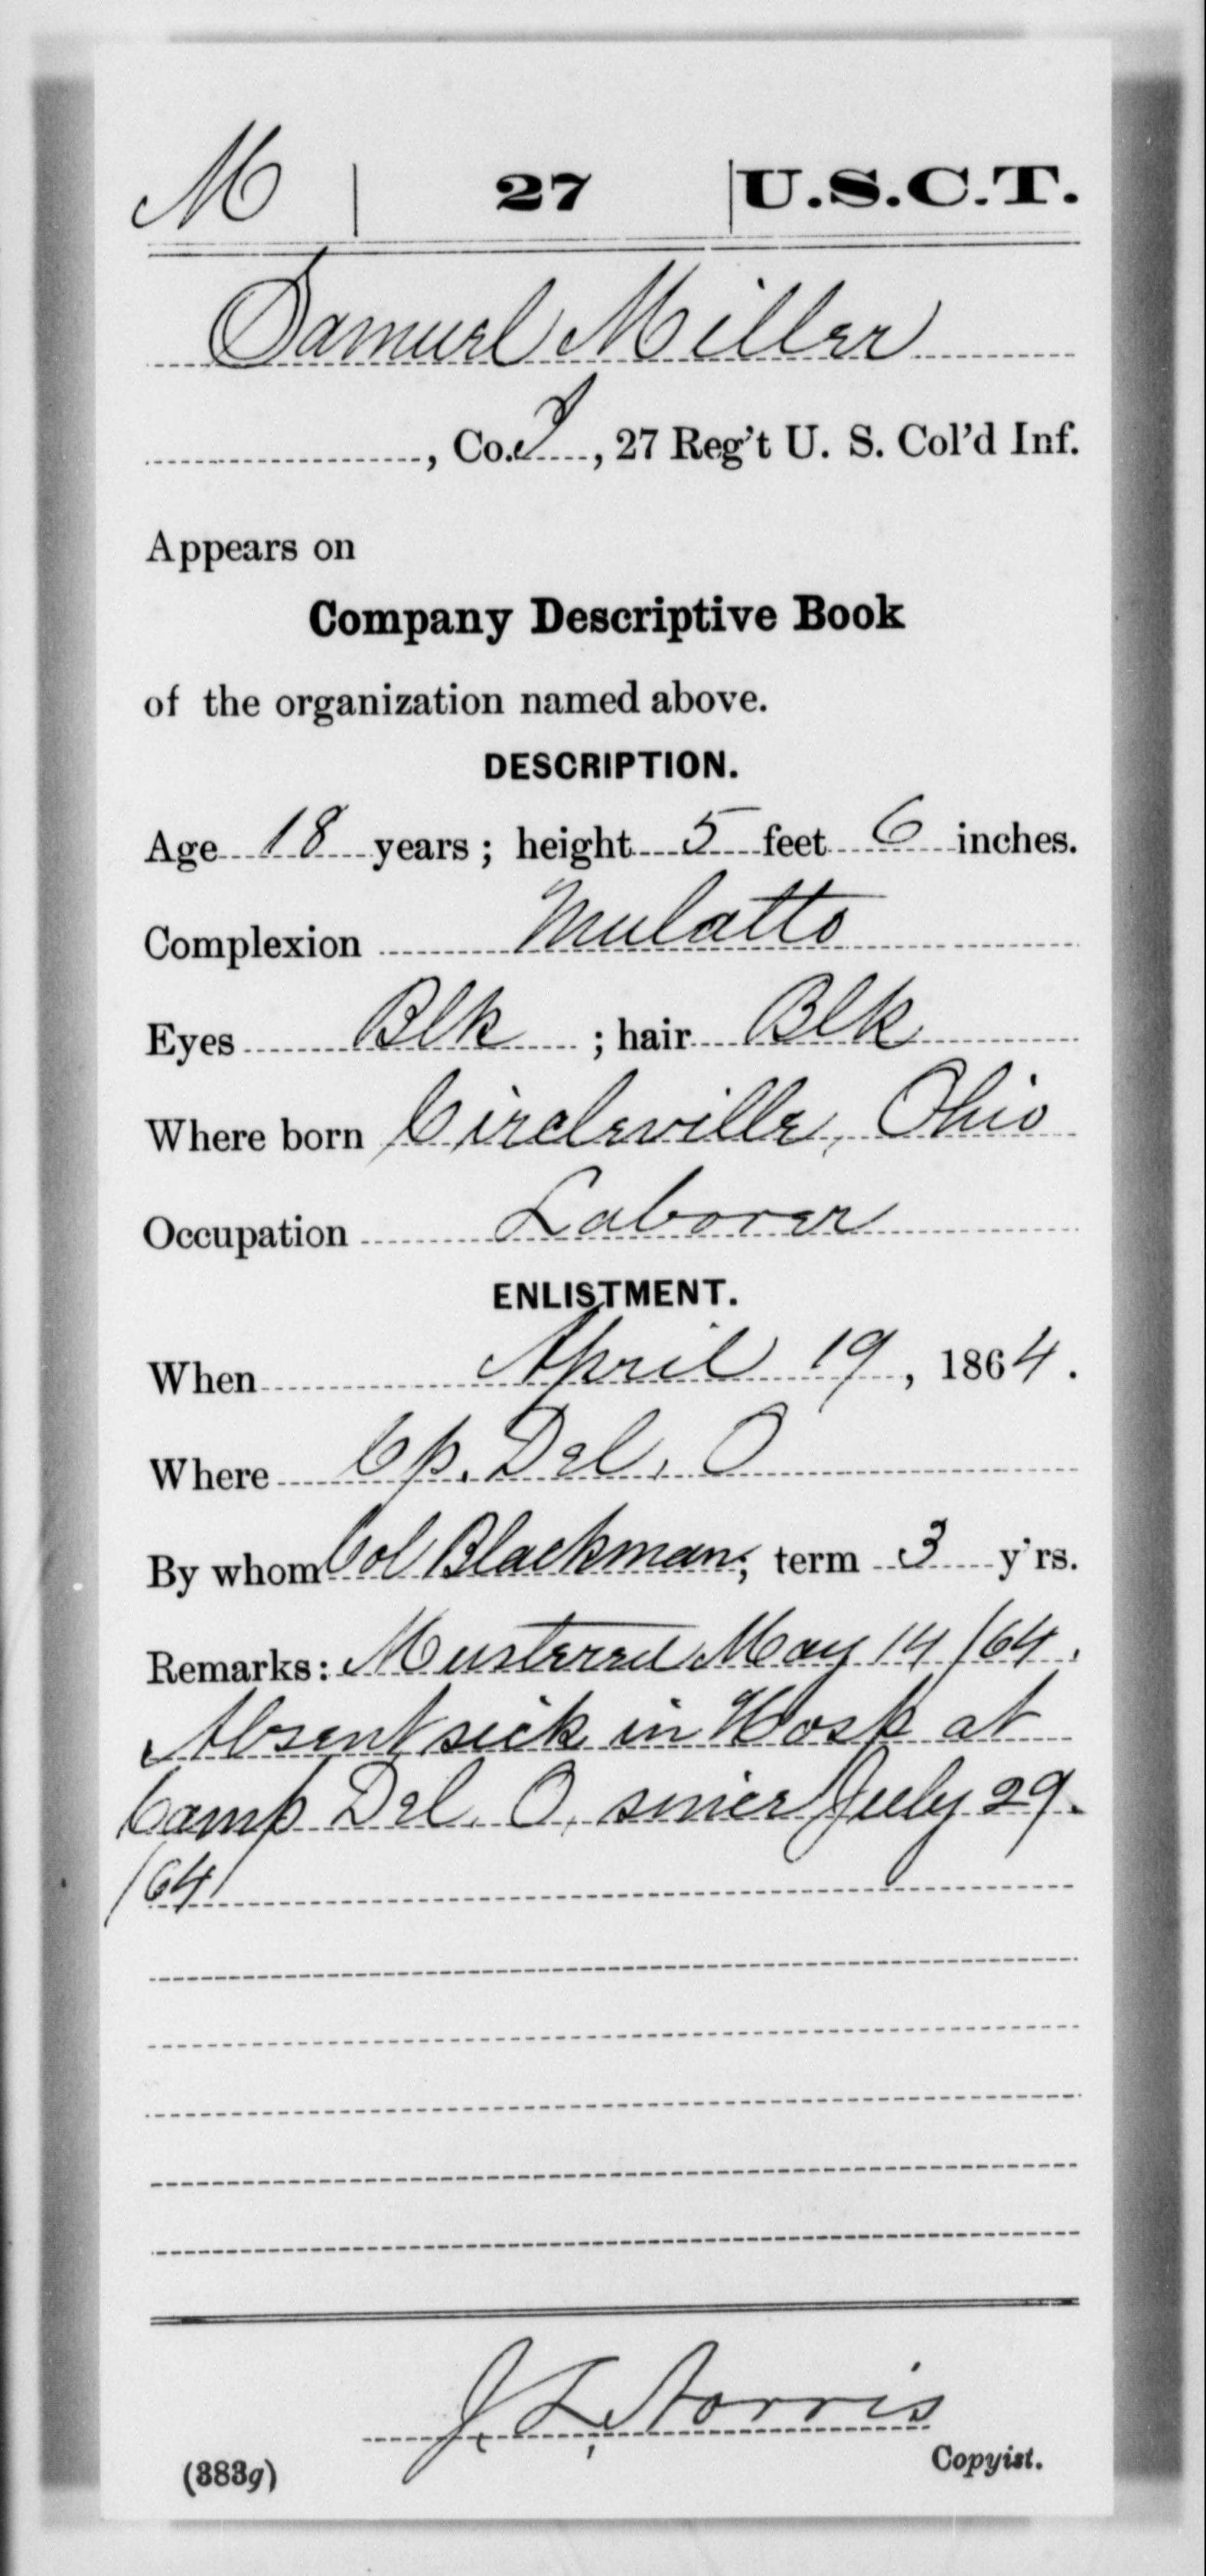 M | 27 | U.S.C.T.
Samuel Miller
, Co. I, 27 Reg't U. S. Col'd Inf.
Appears on
Company Descriptive Book
of the organization named above.
DESCRIPTION.
Age 18 years; height 5 feet 6 inches.
Complexion Mulatto
Eyes Blk; hair Blk
Where born Circleville, Ohio
Occupation Laborer
ENLISTMENT.
When April 19, 1864.
Where Cp. Del. O
By whom Col Blackman; term 3 y'rs.
Remarks: Mustered May 14/64.
Absent sick in Hosp at
Camp Del. O, since July 29.
/64
J. L. Norris
(383g) Copyist.